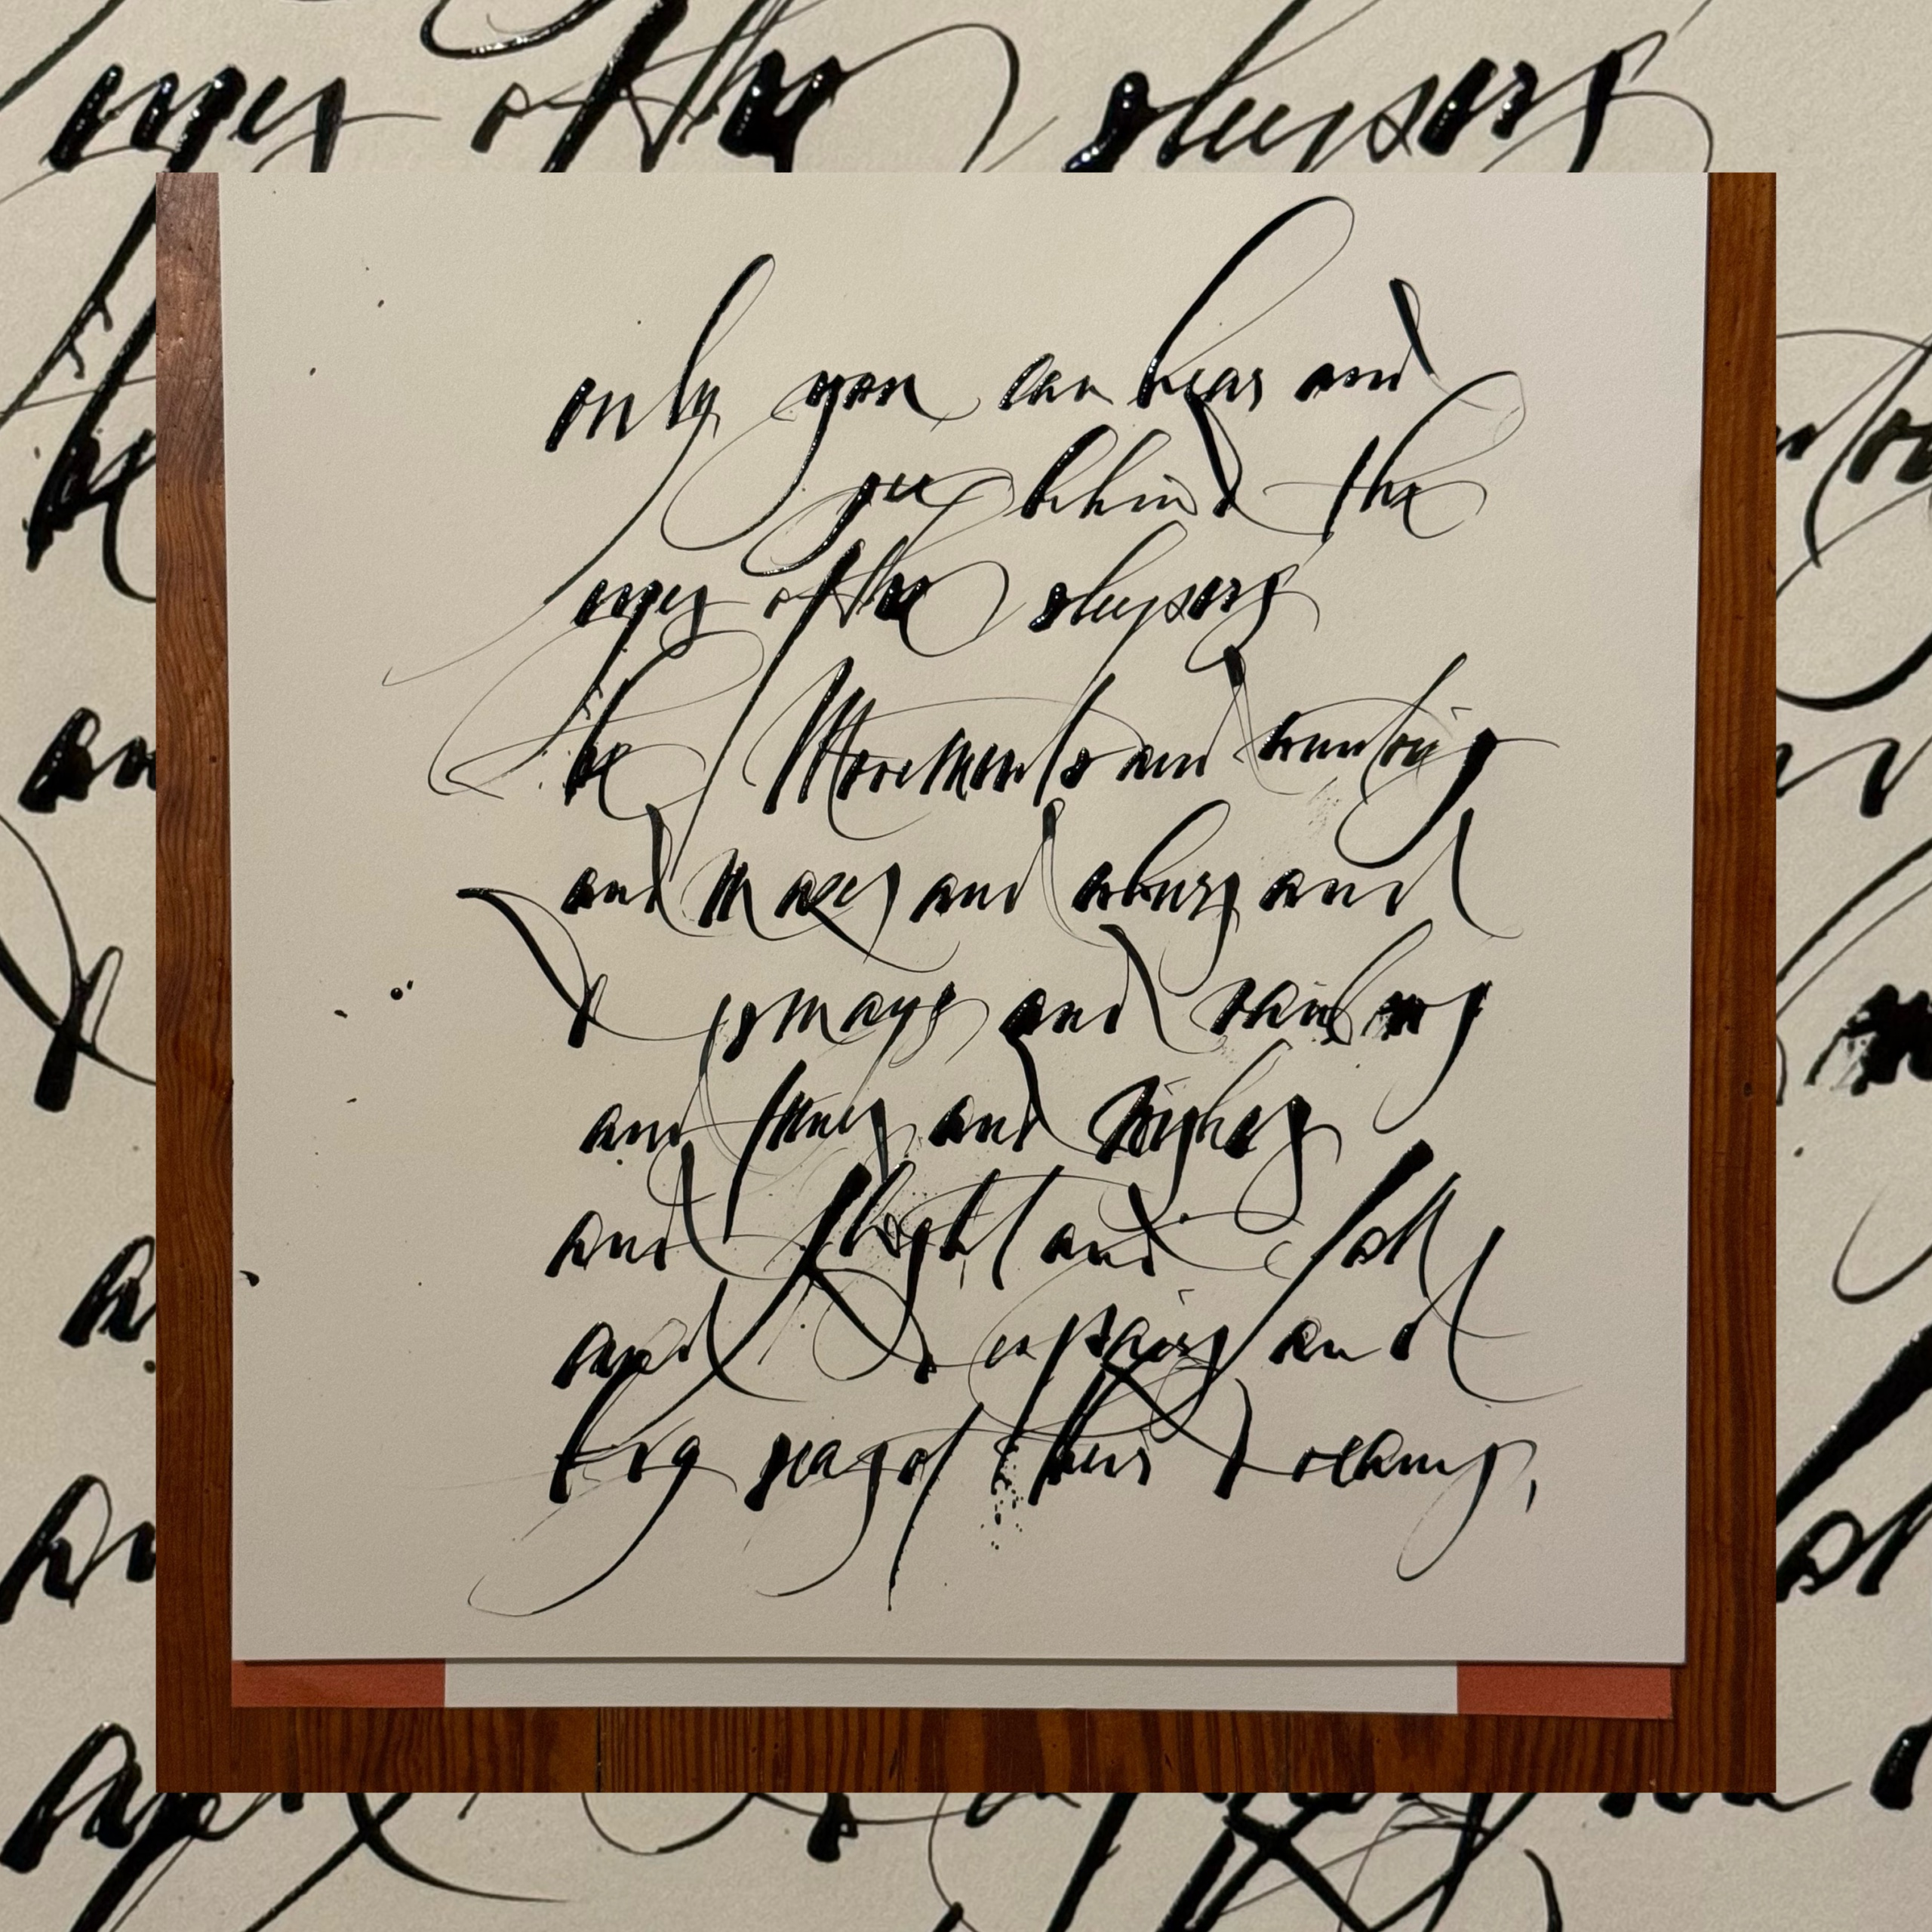 only you can hear and
see behind the
eyes of the sleepers
the Movements and countries
and mazes and colours and
dismays and rainbows
and tunes and wishes
and flight and fall
and despairs and
big seas of their dreams,